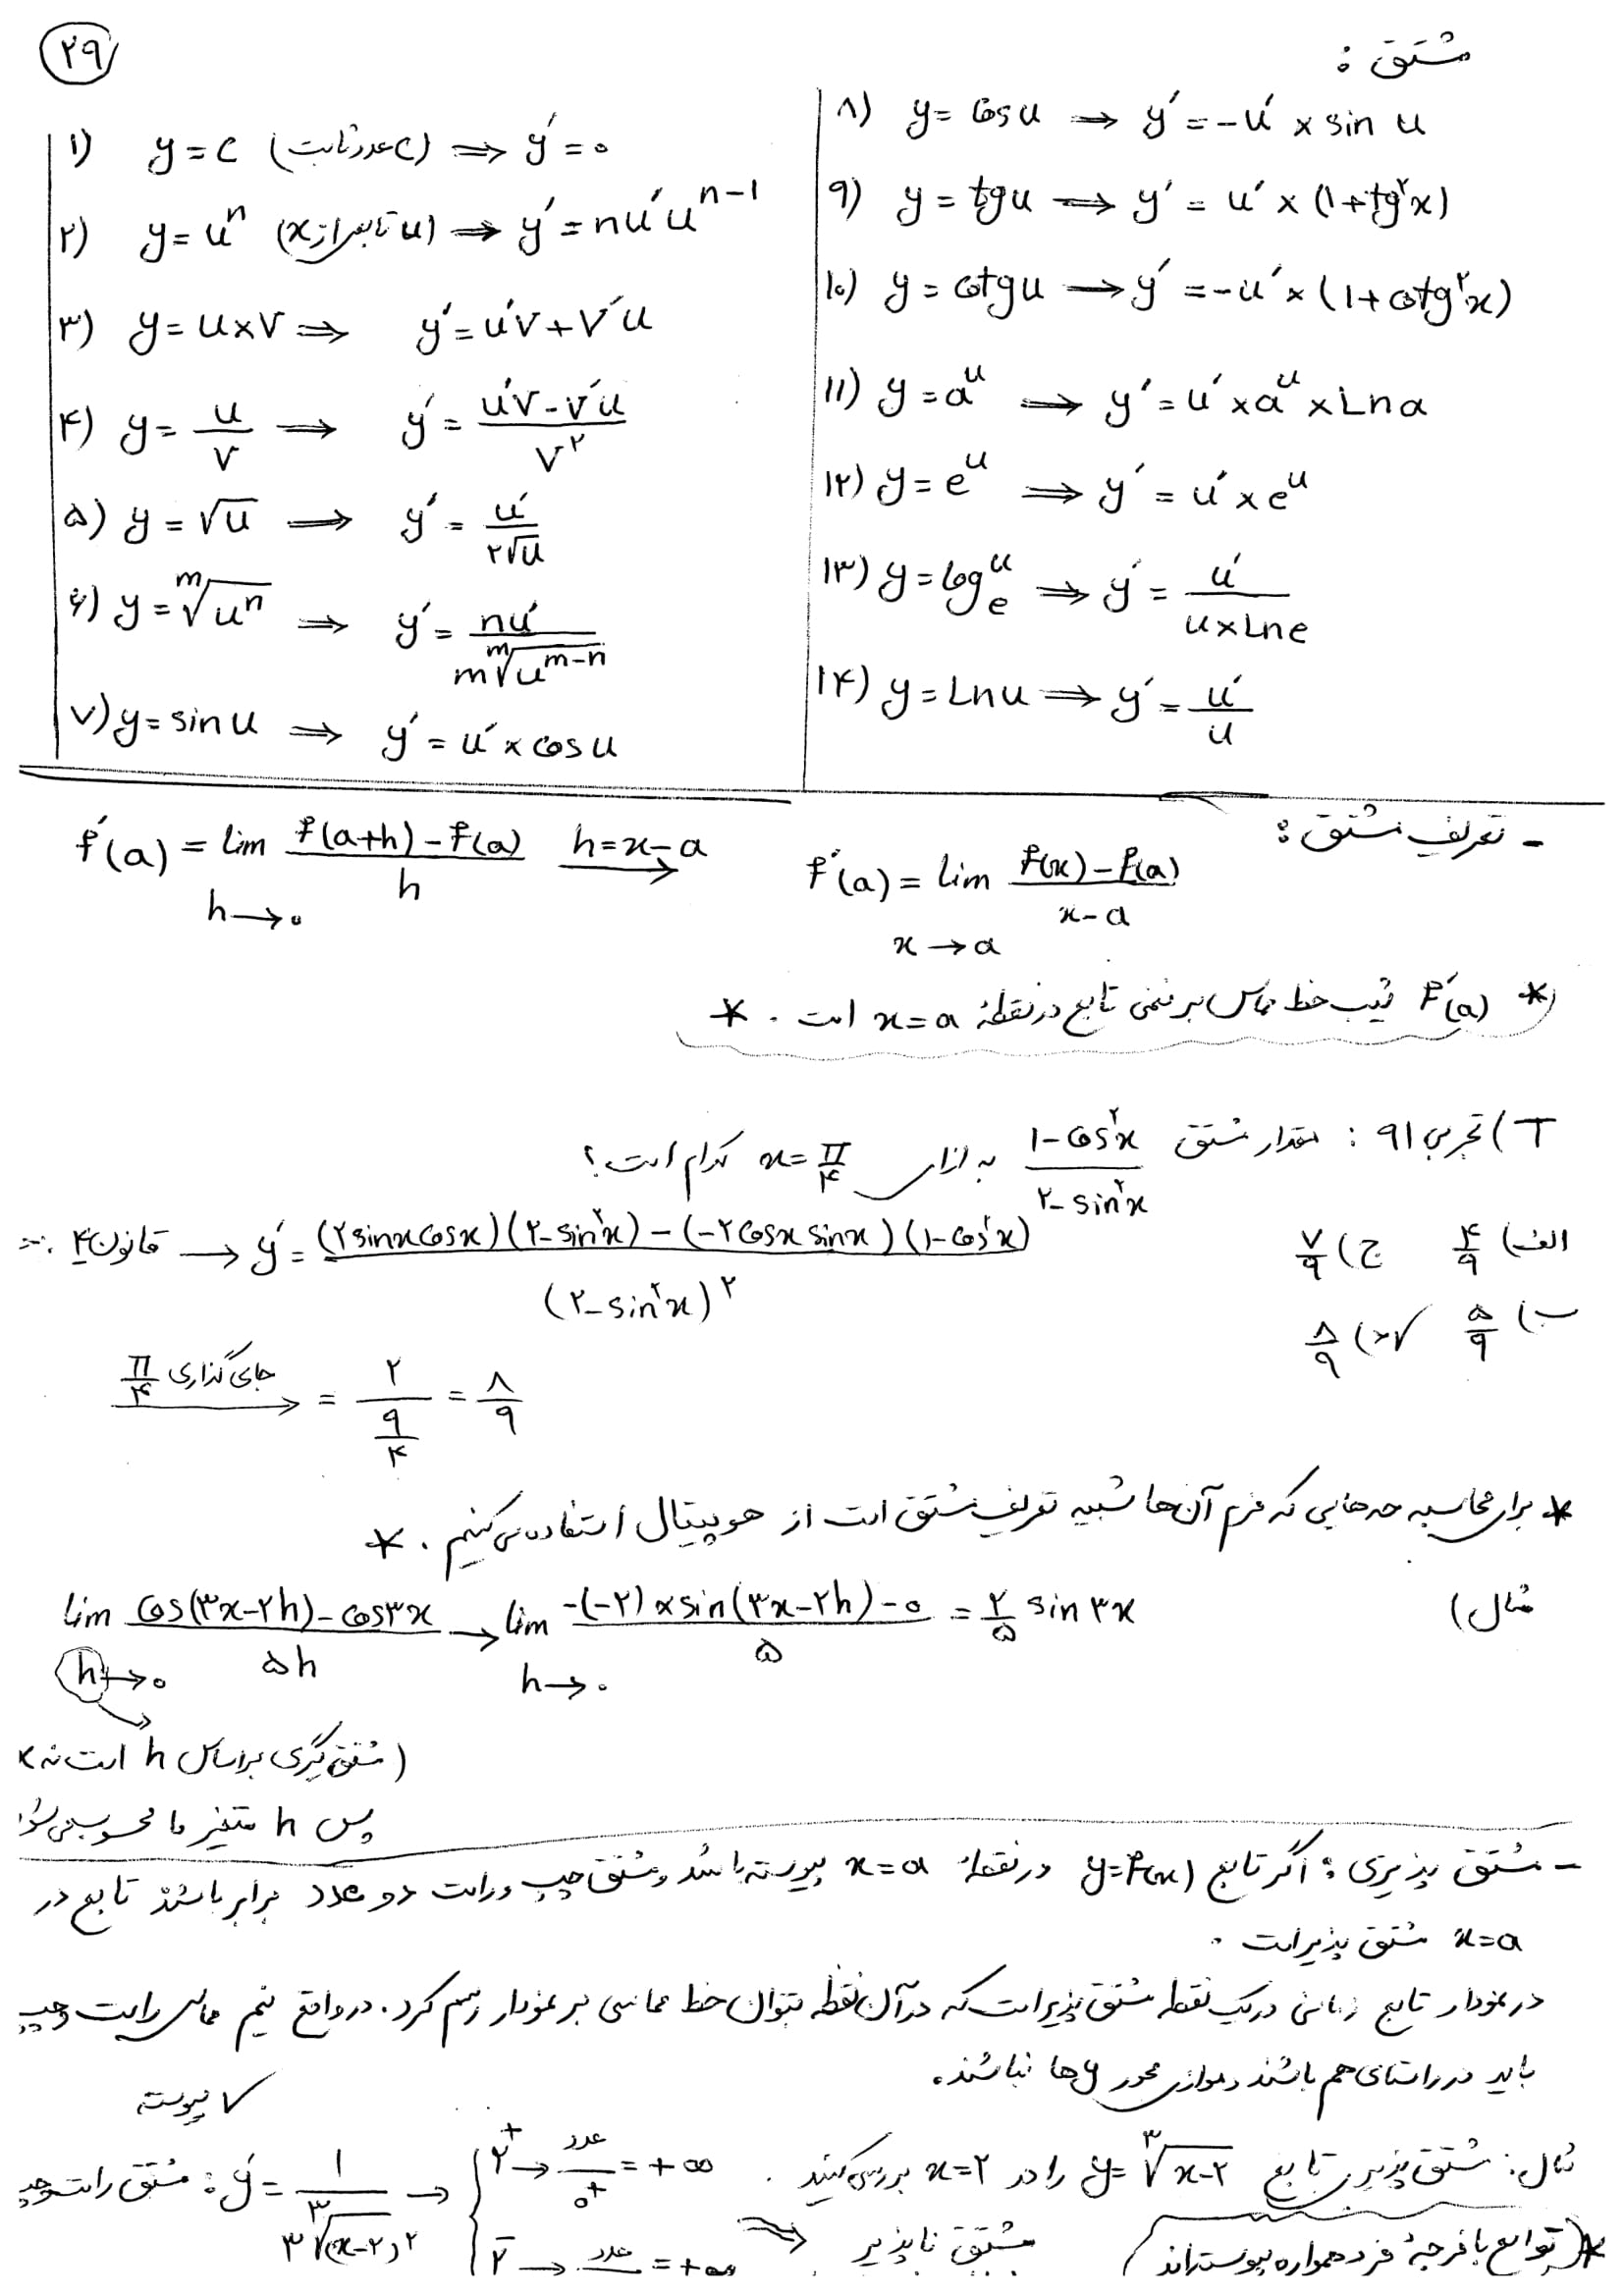 ۲۹
مشتق :
۱) y = c (c عدد ثابت) ⟹ y′ = ۰
۲) y = uⁿ (u تابعی از x) ⟹ y′ = nu′uⁿ⁻¹
۳) y = u×v ⟹ y′ = u′v + v′u
۴) y = u/v ⟹ y′ = (u′v - v′u)/v²
۵) y = √u ⟹ y′ = u′/۲√u
۶) y = ᵐ√(uⁿ) ⟹ y′ = nu′/(m ᵐ√(uᵐ⁻ⁿ))
۷) y = sin u ⟹ y′ = u′ × cos u
۸) y = cos u ⟹ y′ = -u′ × sin u
۹) y = tg u ⟹ y′ = u′ × (1+tg²x)
۱۰) y = cotg u ⟹ y′ = -u′ × (1+cotg²x)
۱۱) y = aᵘ ⟹ y′ = u′ × aᵘ × Ln a
۱۲) y = eᵘ ⟹ y′ = u′ × eᵘ
۱۳) y = log_e^u ⟹ y′ = u′/(u × Ln e)
۱۴) y = Ln u ⟹ y′ = u′/u
- تعریف مشتق :
f′(a) = lim h→۰ (f(a+h) - f(a))/h  h=x-a →  f′(a) = lim x→a (f(x) - f(a))/(x-a)
* f′(a) شیب خط مماس بر منحنی تابع در نقطهٔ x=a است . *
T) تجربی ۹۱ : مقدار مشتق (۱-cos²x)/(۲-sin²x) به ازای x=π/۴ کدام است؟
الف) ۴/۹ ج) ۷/۹
ب) ۵/۹ ✓د) ۸/۹
قانون ۴ → y′ = ((۲sinx cosx)(۲-sin²x) - (-۲cosx sinx)(۱-cos²x))/(۲-sin²x)²
جای گذاری π/۴ → = ۲/(۹/۴) = ۸/۹
* برای محاسبه حدهایی که فرم آن‌ها شبیه تعریف مشتق است از هوپیتال استفاده می‌کنیم . *
مثال) lim h→۰ (cos(۳x-۲h) - cos۳x)/۵h → lim h→۰ (-(-۲)×sin(۳x-۲h) - ۰)/۵ = ۲/۵ sin ۳x
(مشتق گیری براساس h است نه x
پس h متغیر ما محسوب می‌شود
- مشتق پذیری : اگر تابع y=f(x) در نقطهٔ x=a پیوسته باشد و مشتق چپ و راست دو عدد برابر باشند تابع در
x=a مشتق پذیر است .
در نمودار تابع زمانی در یک نقطه مشتق پذیر است که در آن نقطه بتوان خط مماسی بر نمودار رسم کرد . در واقع نیم مماس راست و چپ
باید در راستای هم باشند و موازی محور yها نباشند .
مثال : مشتق پذیری تابع y=³√(x-۲) را در x=۲ بررسی کنید .
✓ پیوسته
مشتق راست و چپ : y′ = ۱/(۳ ³√(x-۲)²) → { ۲⁺ → عدد/۰⁺ = +∞
۲⁻ → عدد = +∞
⟹ مشتق ناپذیر
* (توابع با فرجهٔ فرد همواره پیوسته‌اند)